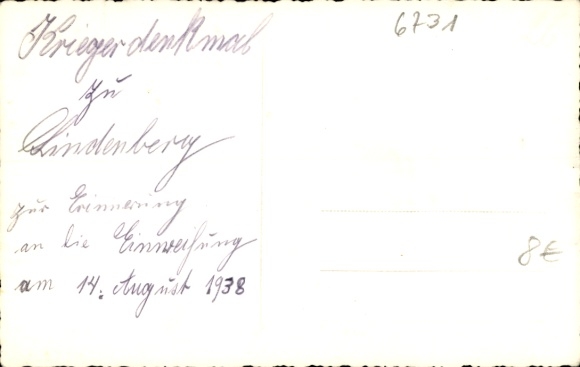 Kriegerdenkmal
zu
Lindenberg
zur Erinnerung
an die Einweihung
am 14. August 1938
6731
8€